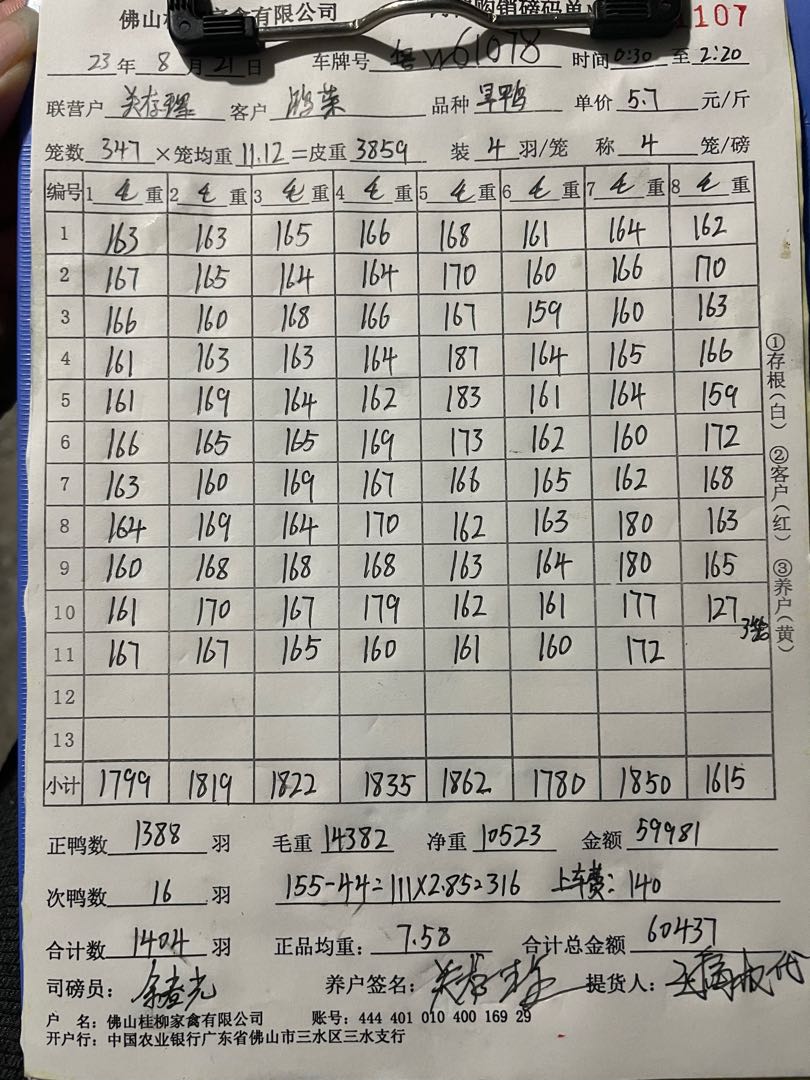 佛山桂柳家禽有限公司 购销磅码单 1107
23年 8月 21日 车牌号 粤W61078 时间 0:30 至 2:20
联营户 关存 客户 品种 旱鸭 单价 5.7 元/斤
笼数 347 ×笼均重 11.12 =皮重 3859 装 4 羽/笼 称 4 笼/磅
编号 1 毛 重 2 毛 重 3 毛 重 4 毛 重 5 毛 重 6 毛 重 7 毛 重 8 毛 重
1 163 163 165 166 168 161 164 162
2 167 165 164 164 170 160 166 170
3 166 160 168 166 167 159 160 163
4 161 163 163 164 187 164 165 166
5 161 169 164 162 183 161 164 159
6 166 165 165 169 173 162 160 172
7 163 160 169 167 166 165 162 168
8 164 169 164 170 162 163 180 163
9 160 168 168 168 163 164 180 165
10 161 170 167 179 162 161 177 127 3笼
11 167 167 165 160 161 160 172
12
13
小计 1799 1819 1822 1835 1862 1780 1850 1615
①存根(白) ②客户(红) ③养户(黄)
正鸭数 1388 羽 毛重 14382 净重 10523 金额 59981
次鸭数 16 羽 155-44=111×2.85=316 上车费:140
合计数 1404 羽 正品均重: 7.58 合计总金额 60437
司磅员: 养户签名: 提货人:
户 名:佛山桂柳家禽有限公司 账号:444 401 010 400 169 29
开户行:中国农业银行广东省佛山市三水区三水支行